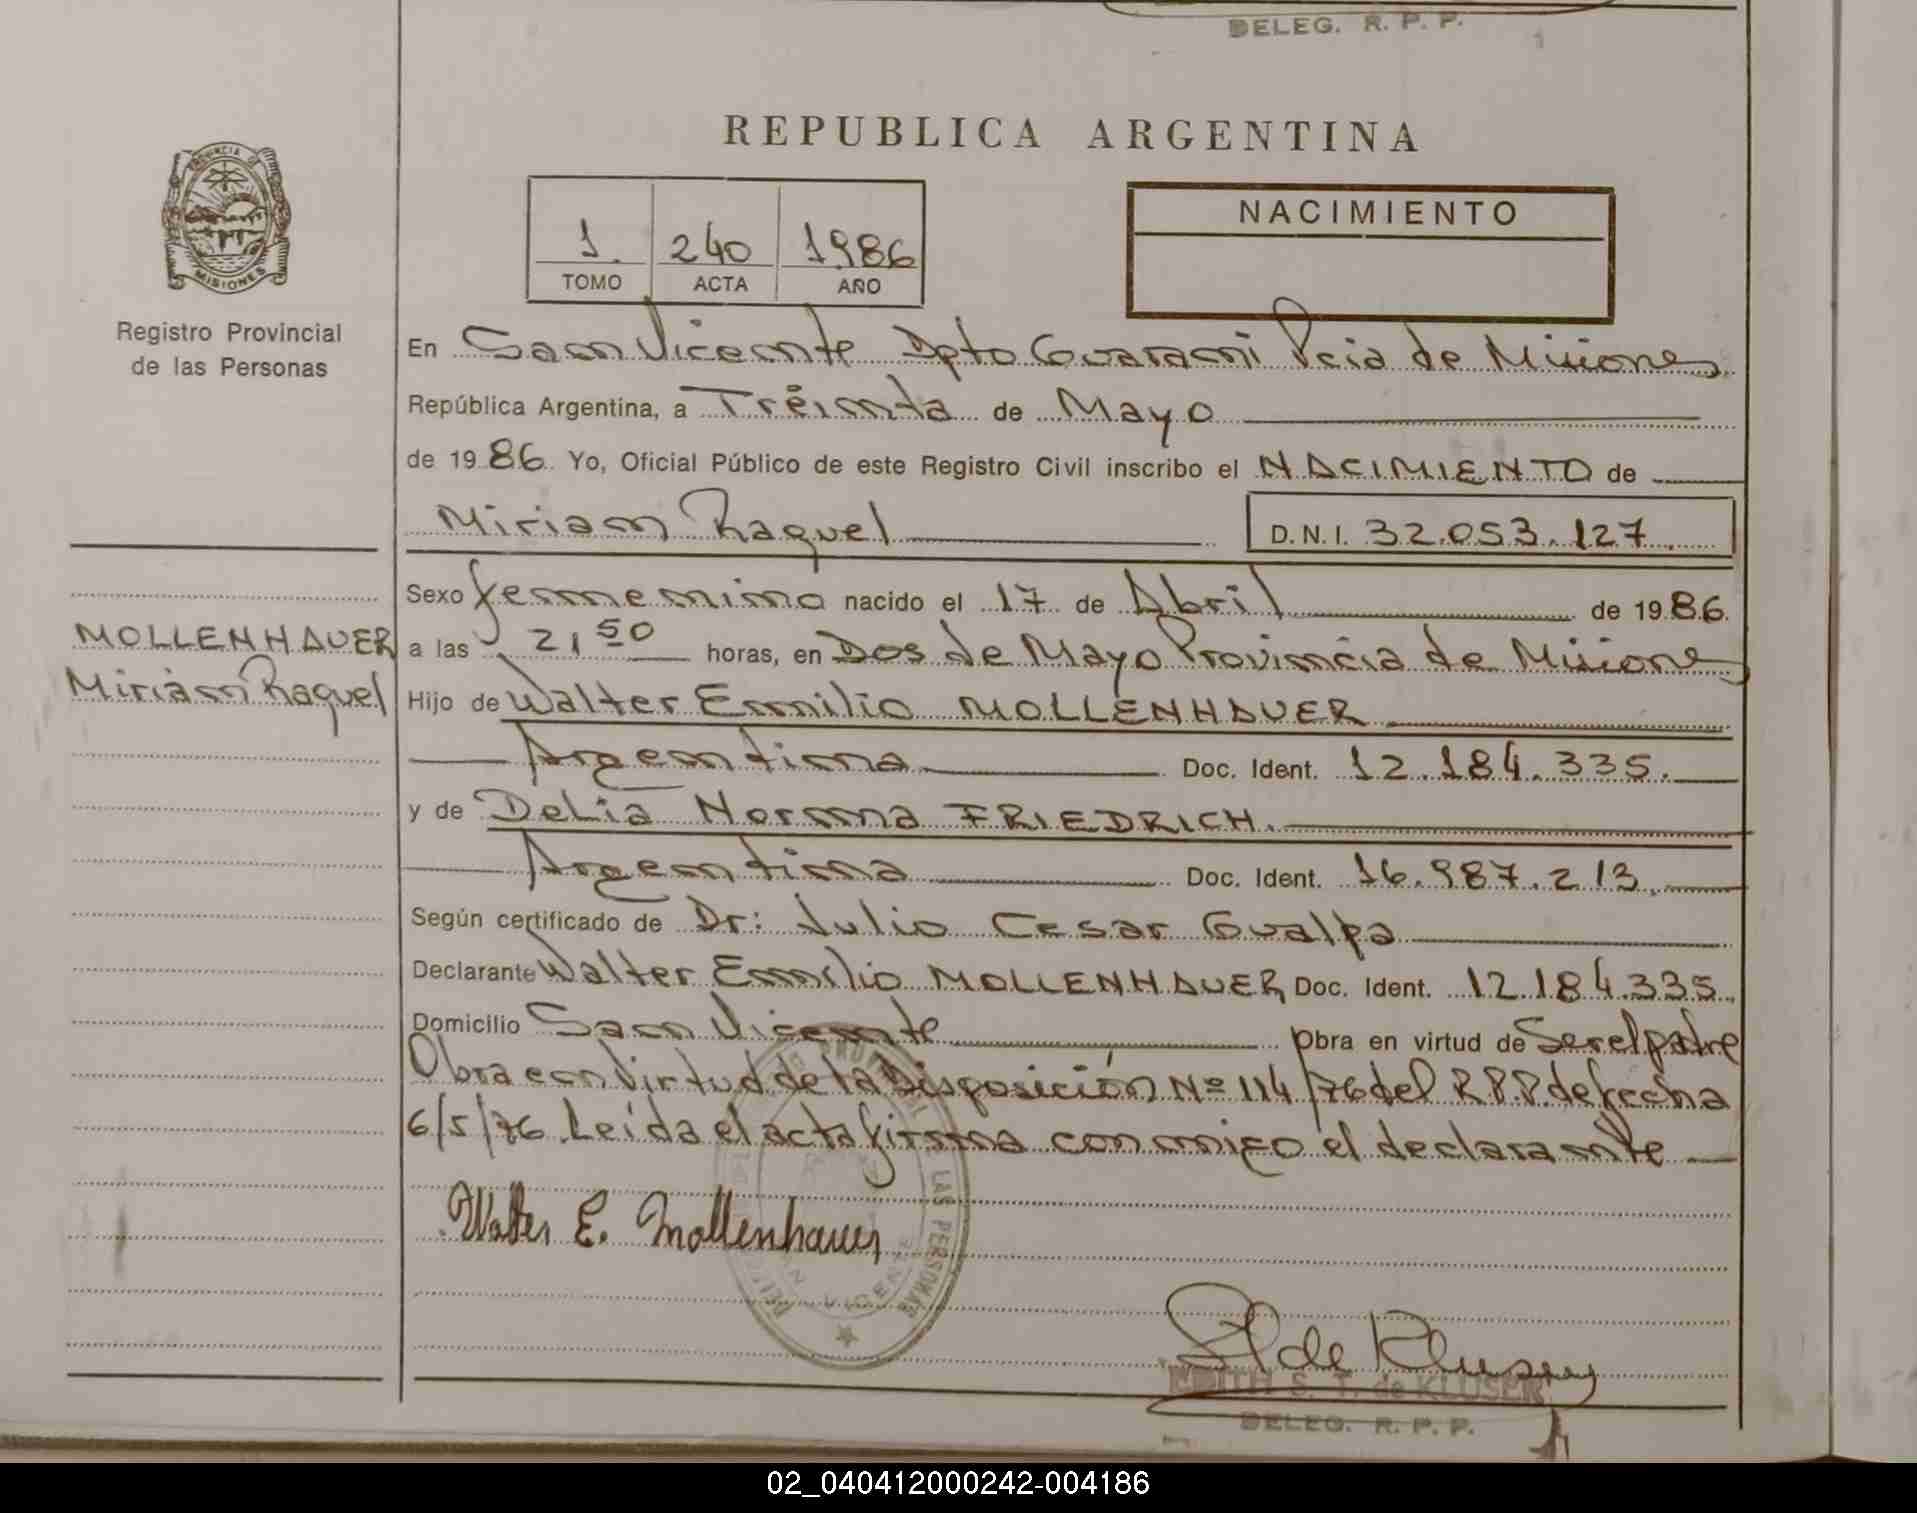 DELEG. R. P. P.
REPUBLICA ARGENTINA
PROVINCIA DE
MISIONES
Registro Provincial
de las Personas
1. 240 1986
TOMO ACTA AÑO
NACIMIENTO
En San Vicente Dpto Guarani Pcia de Misiones
República Argentina, a Treinta de Mayo
de 1986 Yo, Oficial Público de este Registro Civil inscribo el NACIMIENTO de
Miriam Raquel D.N.I. 32.053.127
Sexo femenino nacido el 17 de Abril de 1986.
MOLLENHAUER
Miriam Raquel
a las 21 50 horas, en Dos de Mayo Provincia de Misiones
Hijo de Walter Emilio MOLLENHAUER
Argentina Doc. Ident. 12.184.335.
y de Delia Norma FRIEDRICH.
Argentina Doc. Ident. 16.987.213.
Según certificado de Dr: Julio Cesar Gualpa
Declarante Walter Emilio MOLLENHAUER Doc. Ident. 12.184.335.
Domicilio San Vicente Obra en virtud de Ser el padre
Obra en virtud de la Disposición Nº 114/76 del R.P.P. de fecha
6/5/76. Leída el acta firma conmigo el declarante
Walter E. Mollenhauer
LAS PERSONAS
VICENTE
E de Kluser
EDITH S. T. de KLUSER
DELEG. R. P. P.
02_040412000242-004186